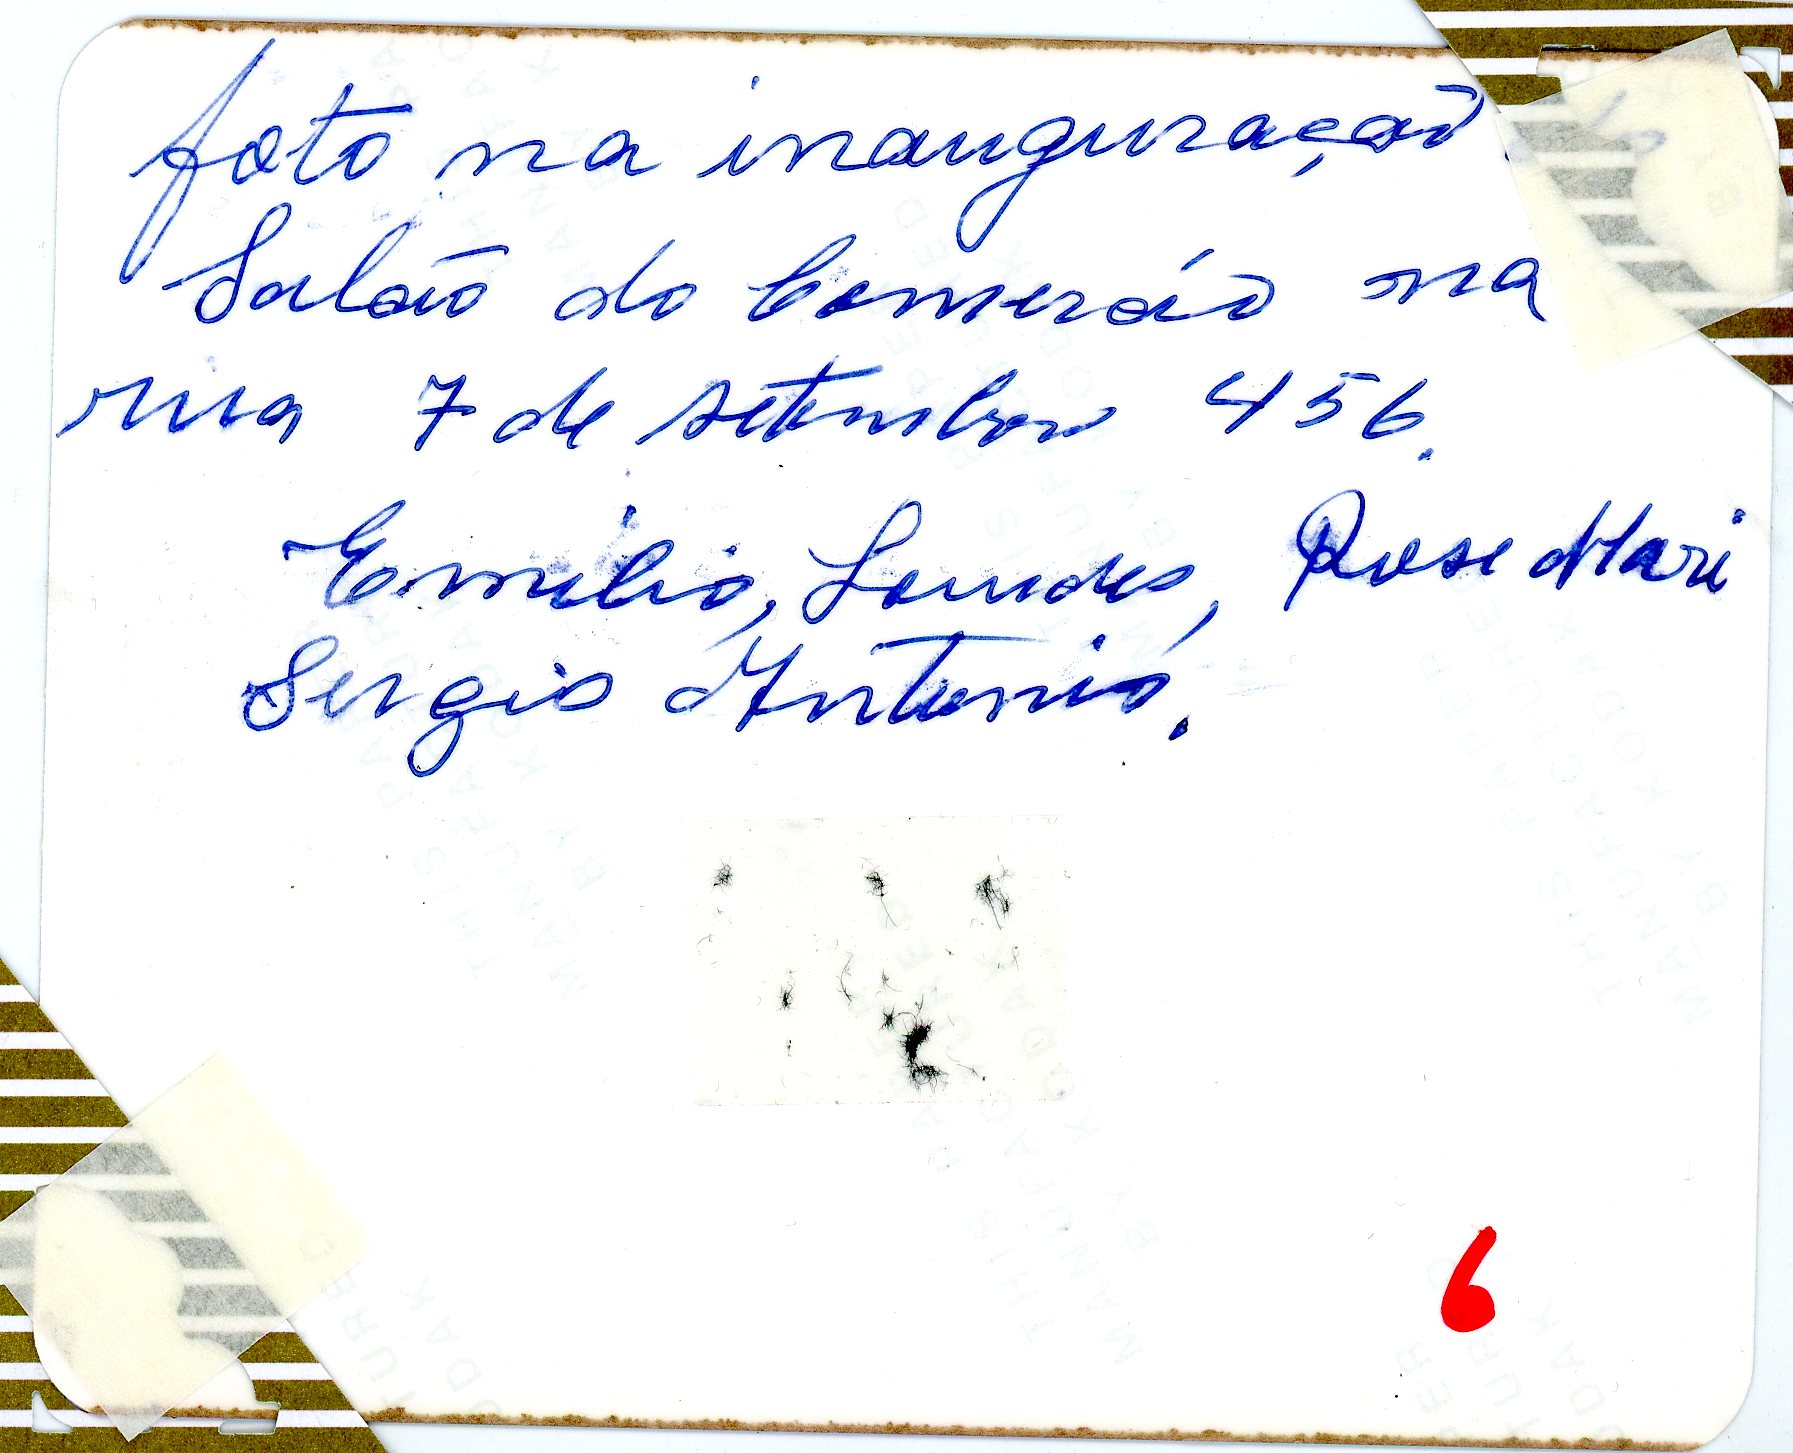 foto na inauguração do
Salão do Comercio na
rua 7 de setembro 456.
Emilio, Lourdes, Rose Mari
Sergio Antonio.
6
THIS PAPER
MANUFACTURED
BY KODAK